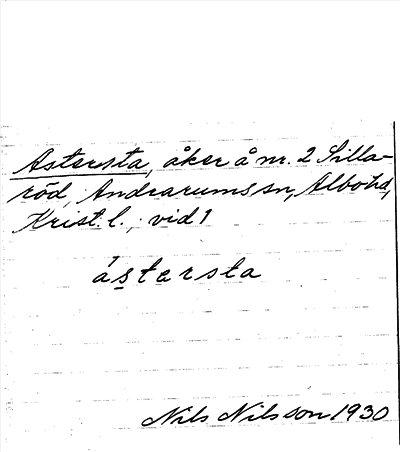 Astersta, åker å nr. 2 Silla-
röd, Andrarums sn, Albo hd,
Krist. l., vid 1
ástersta
Nils Nilsson 1930